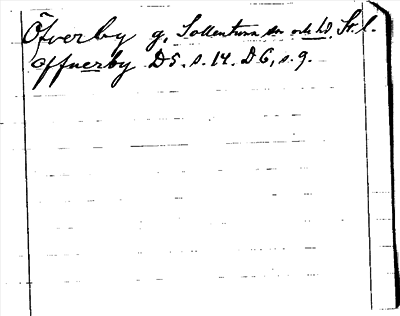 Öfverby g, Sollentuna sn och hd, St. l.
offuerby D 5, s. 14. D 6, s. 9.